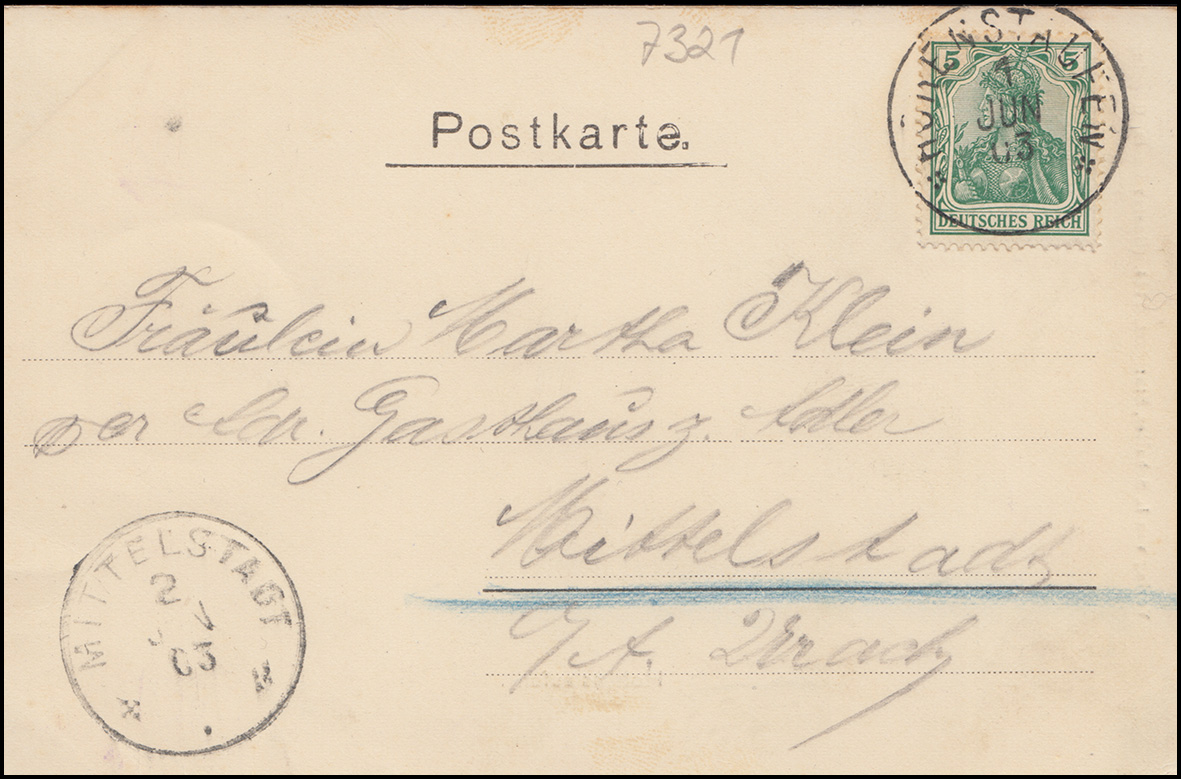 7321
Postkarte.
HOHENSTAUFEN
1
JUN
03
5 5
DEUTSCHES REICH
Fräulein Martha Klein
per Adr. Gasthaus z. Adler
Mittelstadt
O/A. Urach
MITTELSTADT
2
03